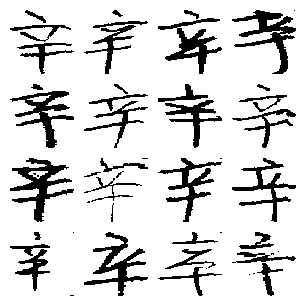 辛辛辛辛
辛辛辛辛
辛辛辛辛
辛辛辛辛